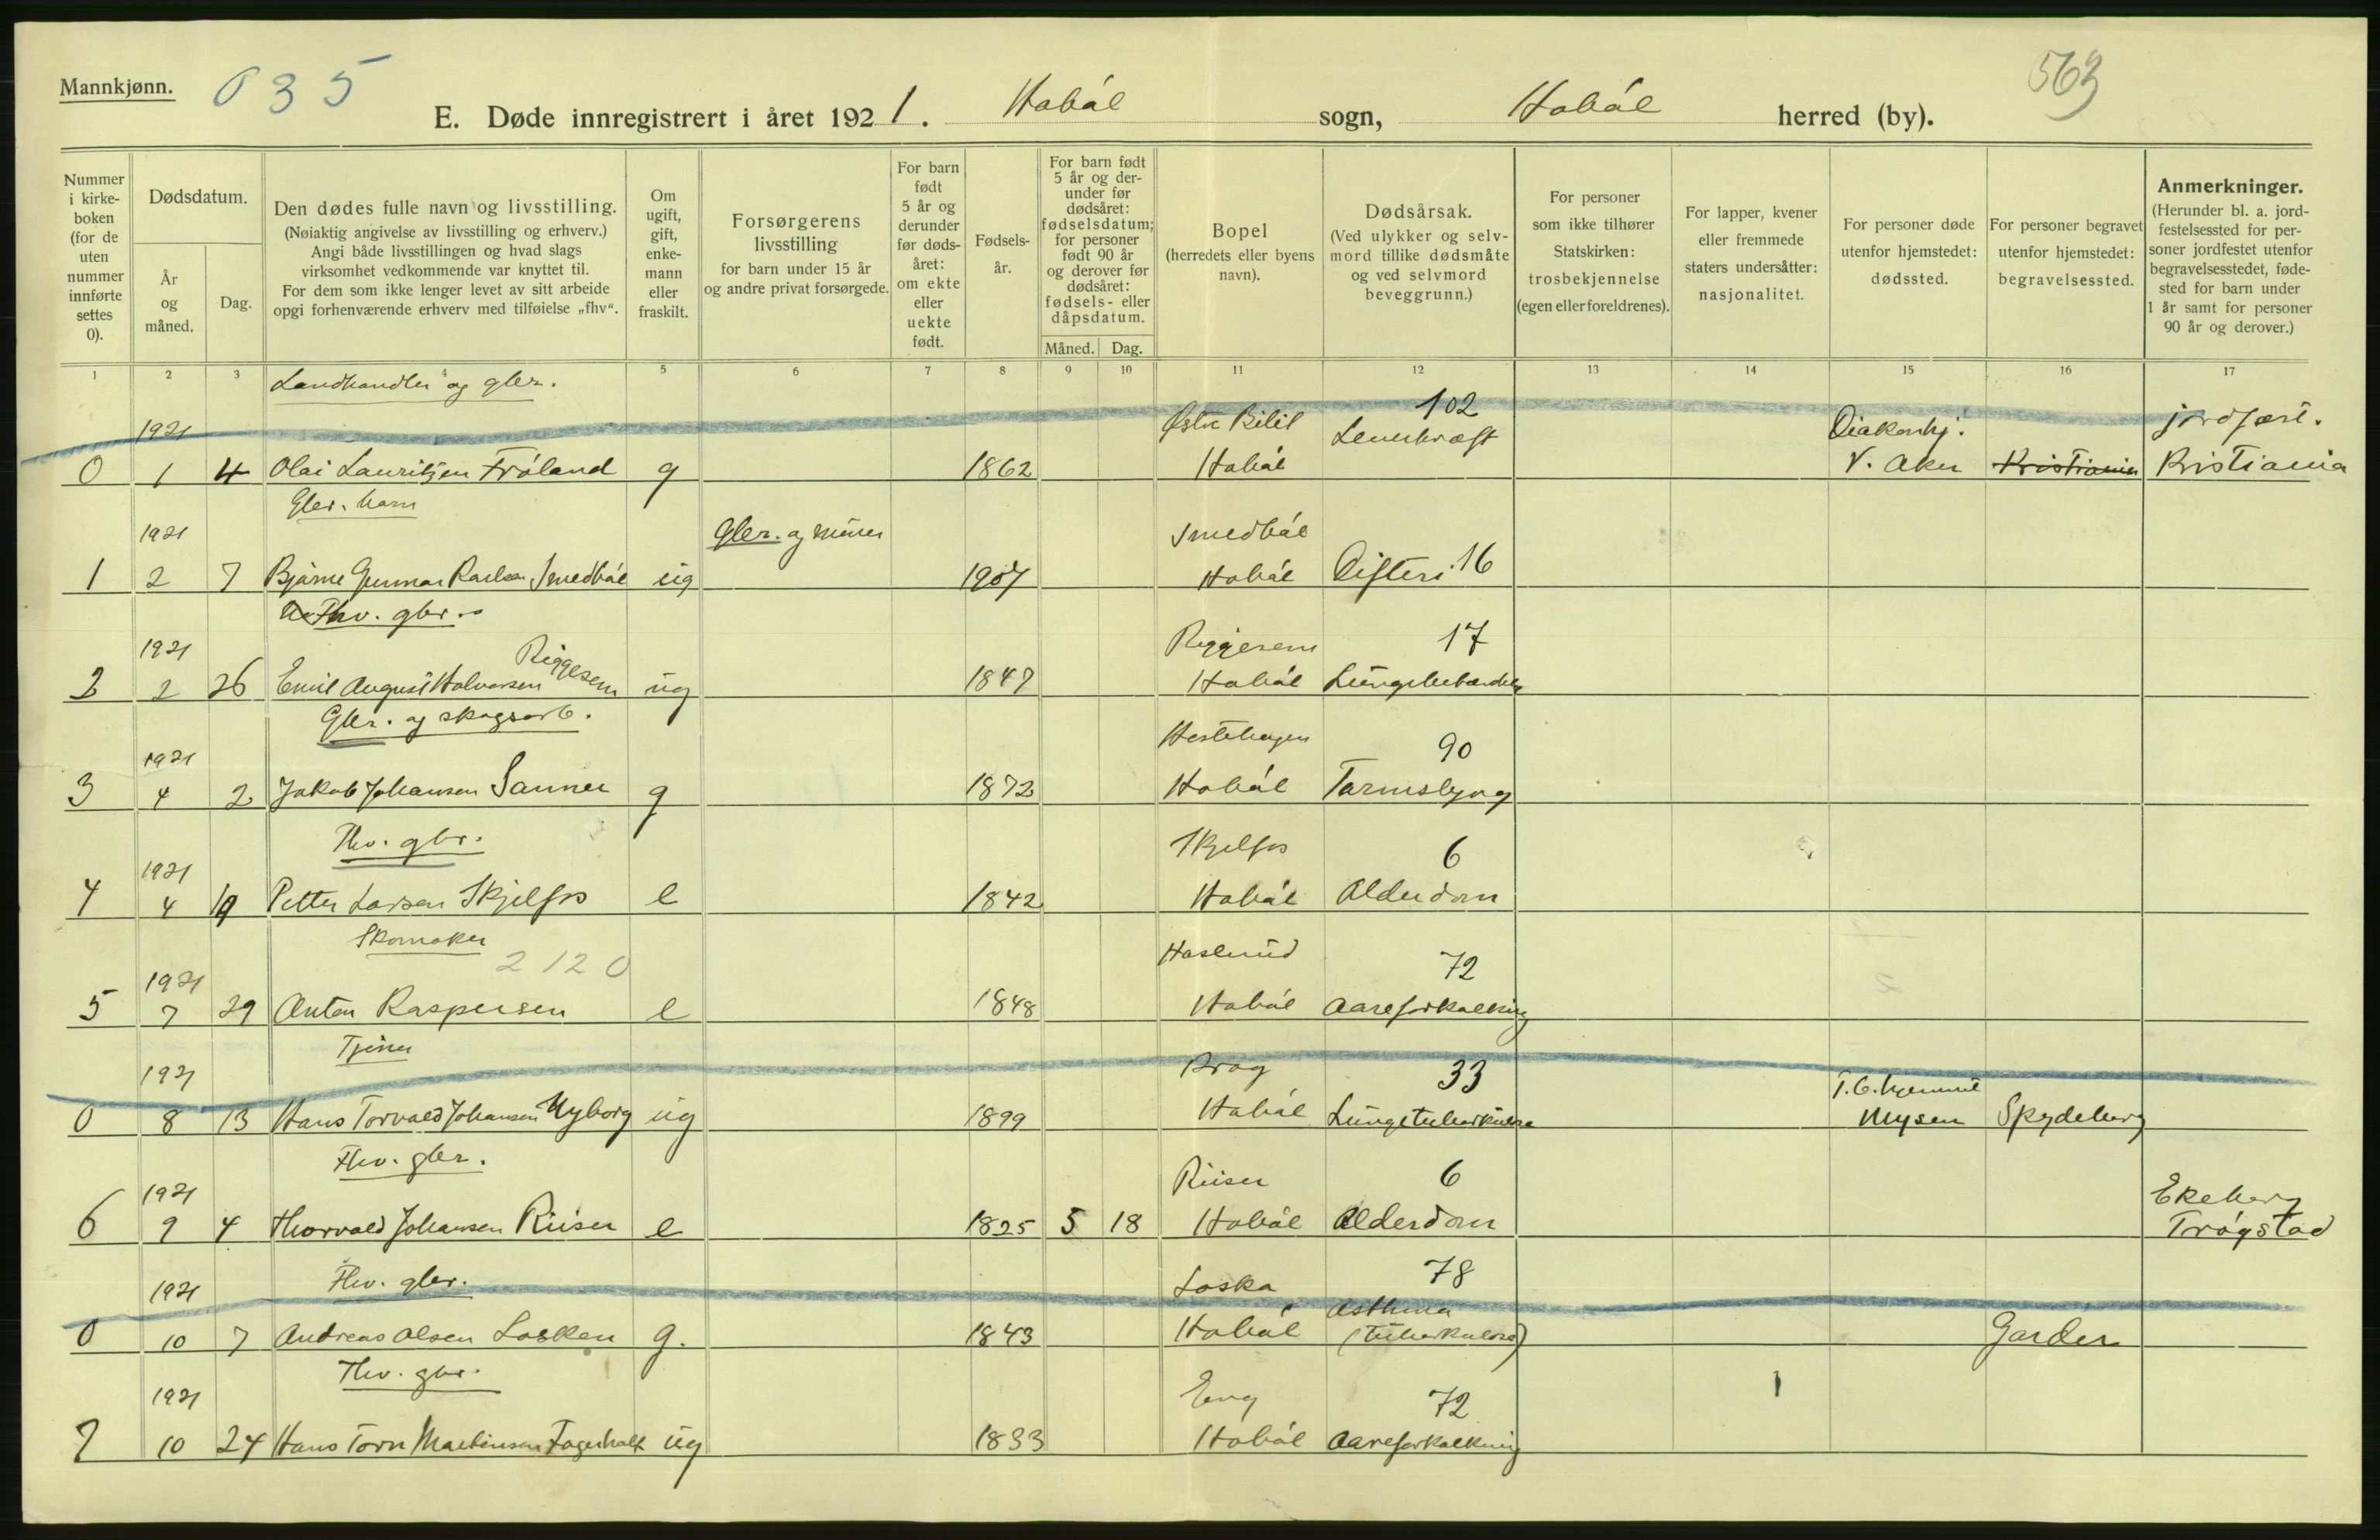 Mannkjønn.
035
563
E. Døde innregistrert i året 1921. Hobøl sogn, Hobøl herred (by).
Nummer i kirkeboken (for de uten nummer innførte settes 0).
Dødsdatum.
År og måned.
Dag.
Den dødes fulle navn og livsstilling.
(Nøiaktig angivelse av livsstilling og erhverv.)
Angi både livsstillingen og hvad slags
virksomhet vedkommende var knyttet til.
For dem som ikke lenger levet av sitt arbeide
opgi forhenværende erhverv med tilføielse „fhv“.
Om ugift, gift, enkemann eller fraskilt.
Forsørgerens livsstilling
for barn under 15 år
og andre privat forsørgede.
For barn født 5 år og derunder før dødsåret: om ekte eller uekte født.
Fødselsår.
For barn født 5 år og derunder før dødsåret: fødselsdatum; for personer født 90 år og derover før dødsåret: fødsels- eller dåpsdatum.
Måned. Dag.
Bopel
(herredets eller byens navn).
Dødsårsak.
(Ved ulykker og selvmord tillike dødsmåte og ved selvmord beveggrunn.)
For personer som ikke tilhører Statskirken: trosbekjennelse (egen eller foreldrenes).
For lapper, kvener eller fremmede staters undersåtter: nasjonalitet.
For personer døde utenfor hjemstedet: dødssted.
For personer begravet utenfor hjemstedet: begravelsessted.
Anmerkninger.
(Herunder bl. a. jordfestelsessted for personer jordfestet utenfor begravelsesstedet, fødested for barn under 1 år samt for personer 90 år og derover.)
1 2 3 4 5 6 7 8 9 10 11 12 13 14 15 16 17
Landhandler og gbr.
1921 Østre Bilit 102 Diakonhj. jordfest.
0 1 4 Olai Lauritzen Frøland g 1862 Hobøl Leverkræft V. Aker Kristiania Kristiania
Gbr. barn
1921 Gbr. og Smedbøl
1 2 7 Bjarne Gunnar Karlsen Smedbøl ug 1907 Hobøl Difteri 16
Fhv. gbr.
1921 Riggesem Riggesem 17
2 2 26 Emil August Halvorsen ug 1847 Hobøl Lungebetændelse
Gbr. og skogsarb.
1921 Hestehagen 90
3 4 2 Jakob Johansen Sanner g 1872 Hobøl Tarmslyng
Fhv. gbr.
1921 Skjelfos 6
4 4 19 Petter Larsen Skjelfos e 1842 Hobøl Alderdom
Skomaker
2120
1921 Haslerud 72
5 7 29 Anton Kaspersen e 1848 Hobøl Aareforkalkning
Tjener
1921 Krog 33 T.b. hjemmet
0 8 13 Hans Torvald Johansen Nyborg ug 1899 Hobøl Lungetuberkulose Mysen Spydeberg
Fhv. gbr.
1921 Riiser 6 Ekeberg
6 9 4 Thorvald Johansen Riiser e 1825 5 18 Hobøl Alderdom Trøgstad
Fhv. gbr.
1921 Loska 78 Asthma
0 10 7 Andreas Olsen Losken g. 1843 Hobøl (tuberkulose) Garder
Fhv. gbr.
1921 Eng 72
7 10 24 Hans Torn Martinsen Fagerholt ug 1833 Hobøl Aareforkalkning